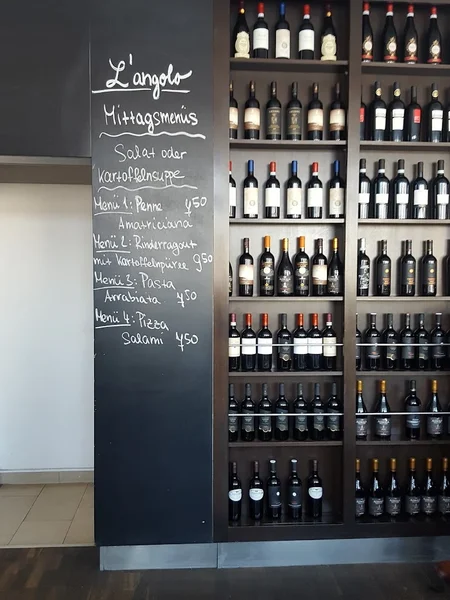 L'angolo
Mittagsmenüs
Salat oder
Kartoffelnsuppe
Menü 1: Penne 750
Amatriciana
Menü 2: Rinderragout
mit Kartoffelnpüree 950
Menü 3: Pasta
Arrabiata 750
Menü 4: Pizza
Salami 750